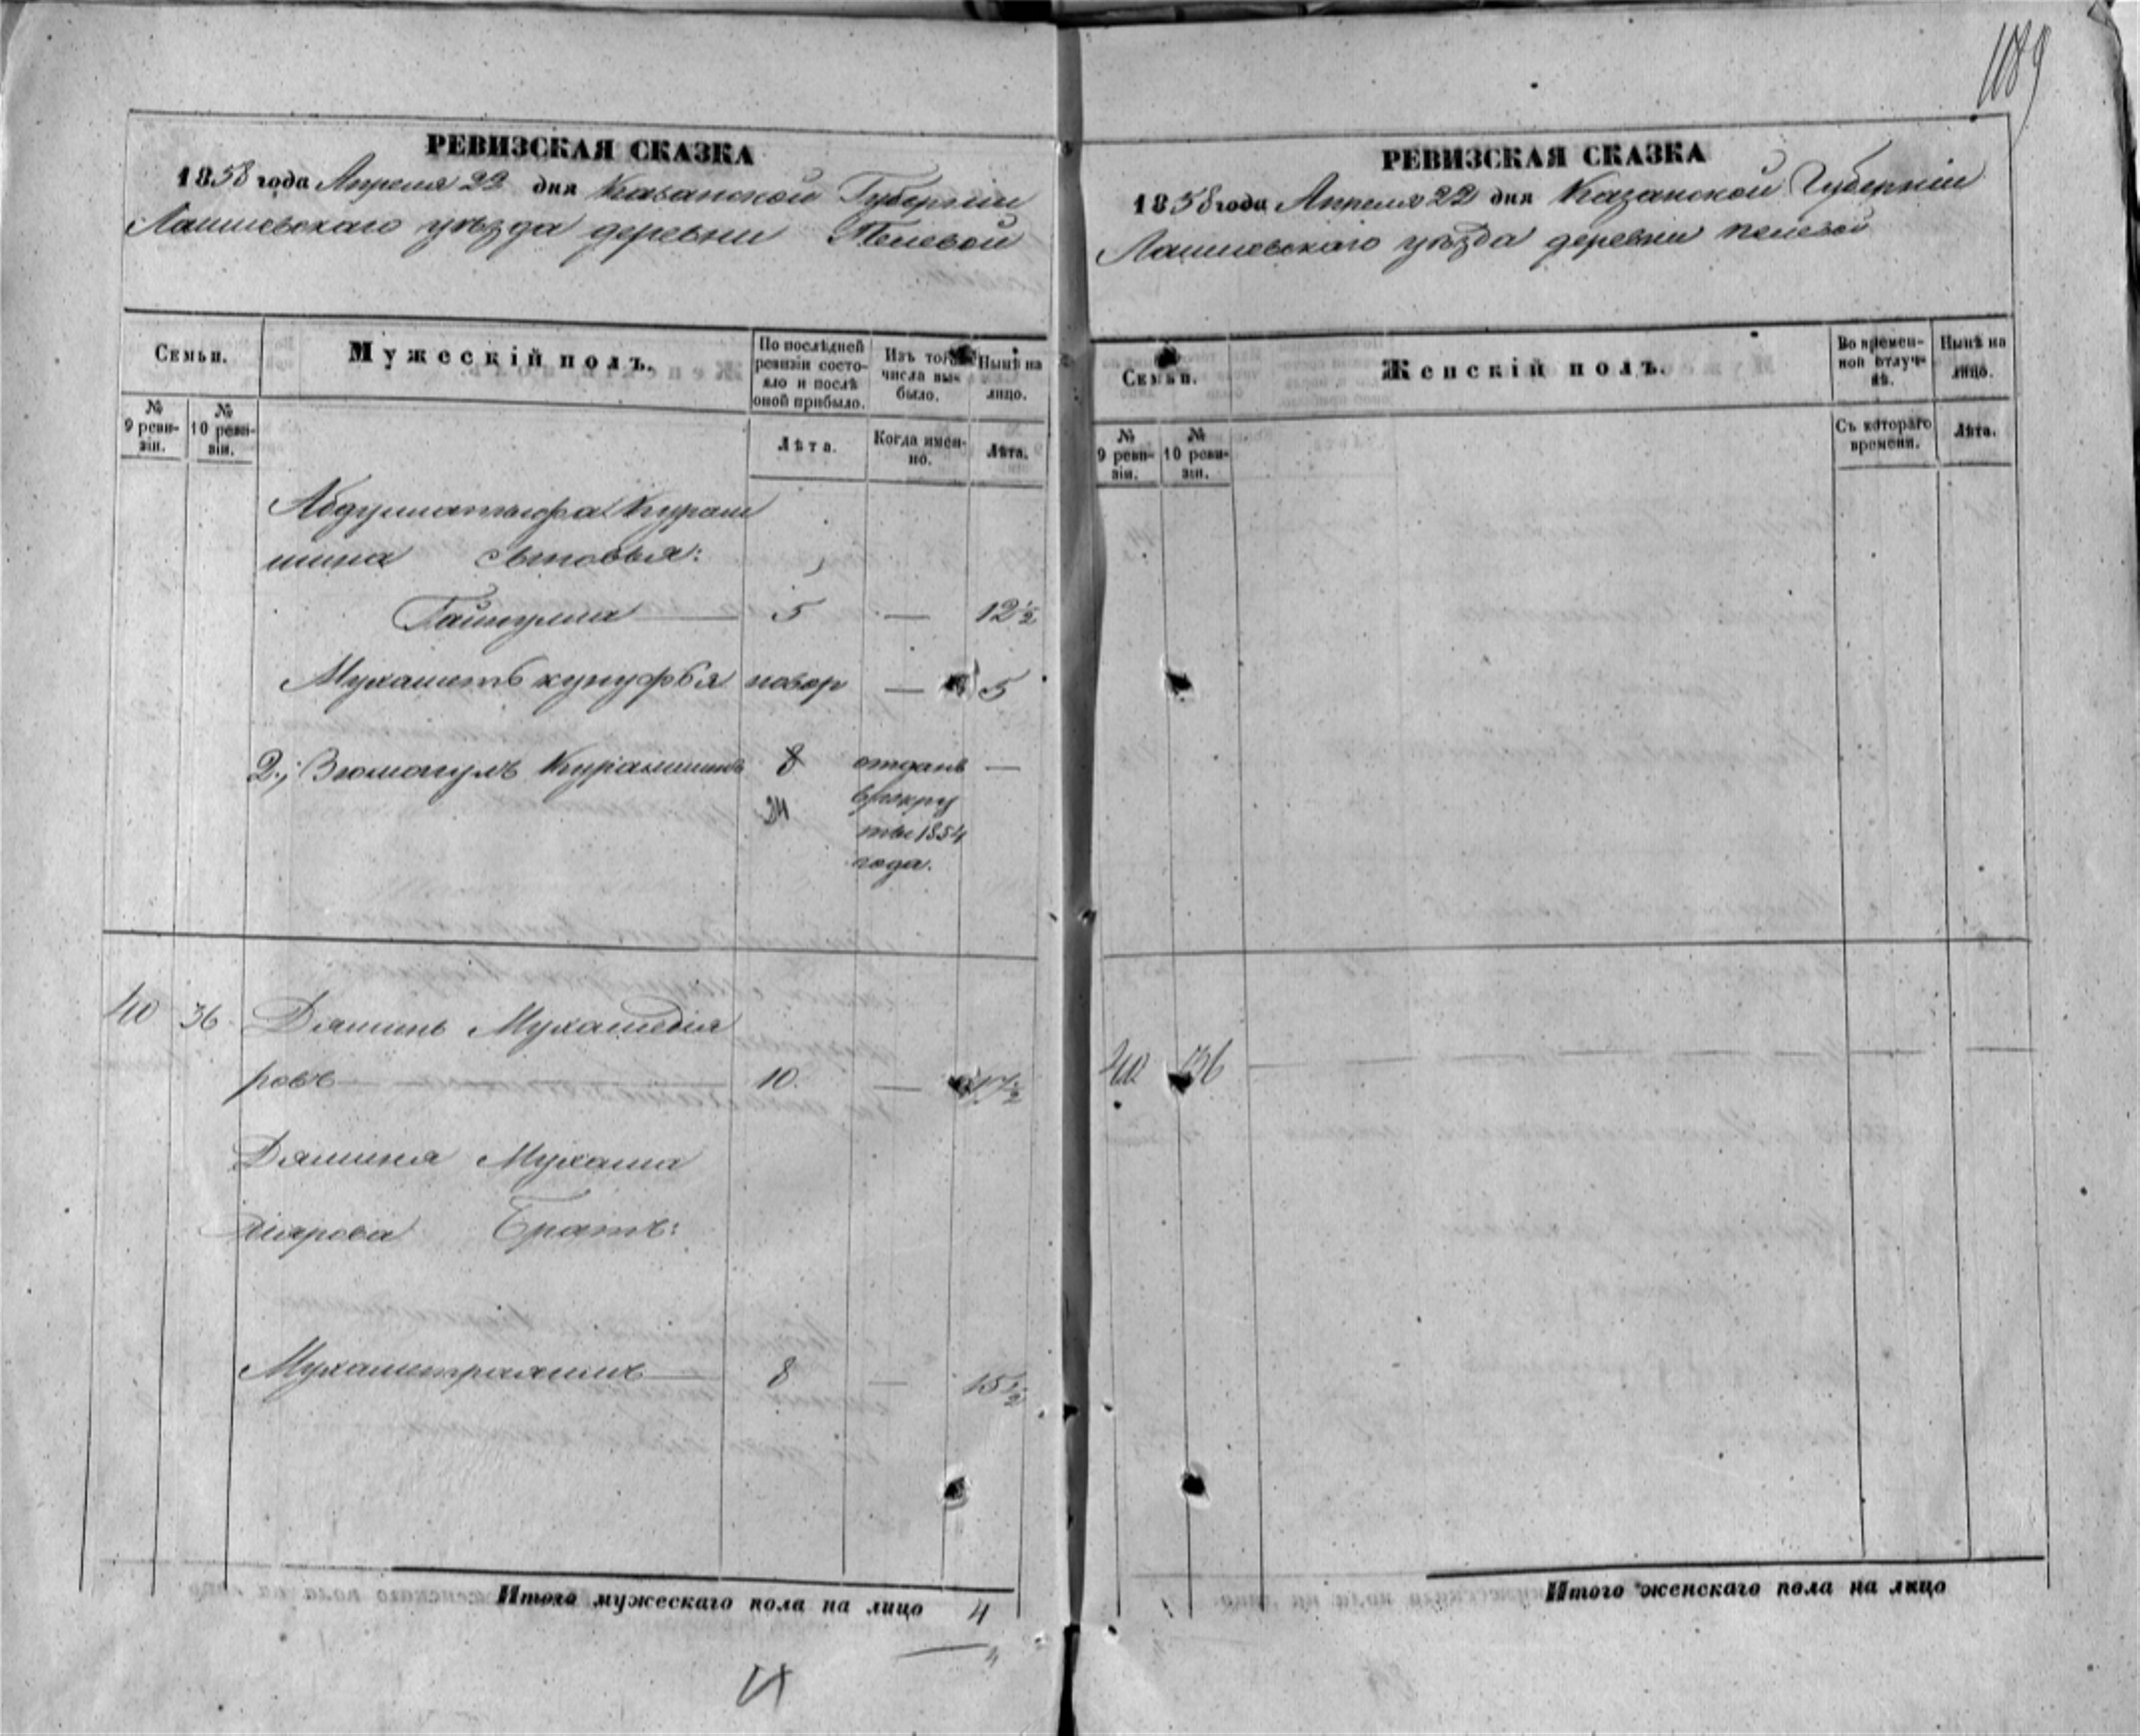 1189
РЕВИЗСКАЯ СКАЗКА
1858 года Апреля 22 дня Казанской Губернии
Лаишевскаго уѣзда деревни Пелевой
Семьи.
Мужескій полъ.
По послѣдней ревизіи состояло и послѣ оной прибыло.
Изъ того числа выбыло.
Нынѣ на лицо.
№ 9 ревизіи.
№ 10 ревизіи.
Лѣта.
Когда именно.
Лѣта.
Абдуллатыфа Курам
шина сыновья:
Гайнулла 5 — 12½
Мухаметъ новор — 5
2.; Курамшинъ 8 отданъ —
24 в рекру
ты 1854
года.
40 36 Дяминъ Мухамедія
ровъ 10. — 17½
Дяминя Мухаме
діярова Братъ:
Мухаметрахимъ 8 — 15½
Итого мужескаго пола на лицо 4
РЕВИЗСКАЯ СКАЗКА
1858 года Апреля 22 дня Казанской Губерніи
Лаишевскаго уѣзда деревни пелевой
Семьи.
Женскій полъ.
Во временной отлучкѣ.
Нынѣ на лицо.
№ 9 ревизіи.
№ 10 ревизіи.
Съ котораго времени.
Лѣта.
40 36 — — —
Итого женскаго пола на лицо